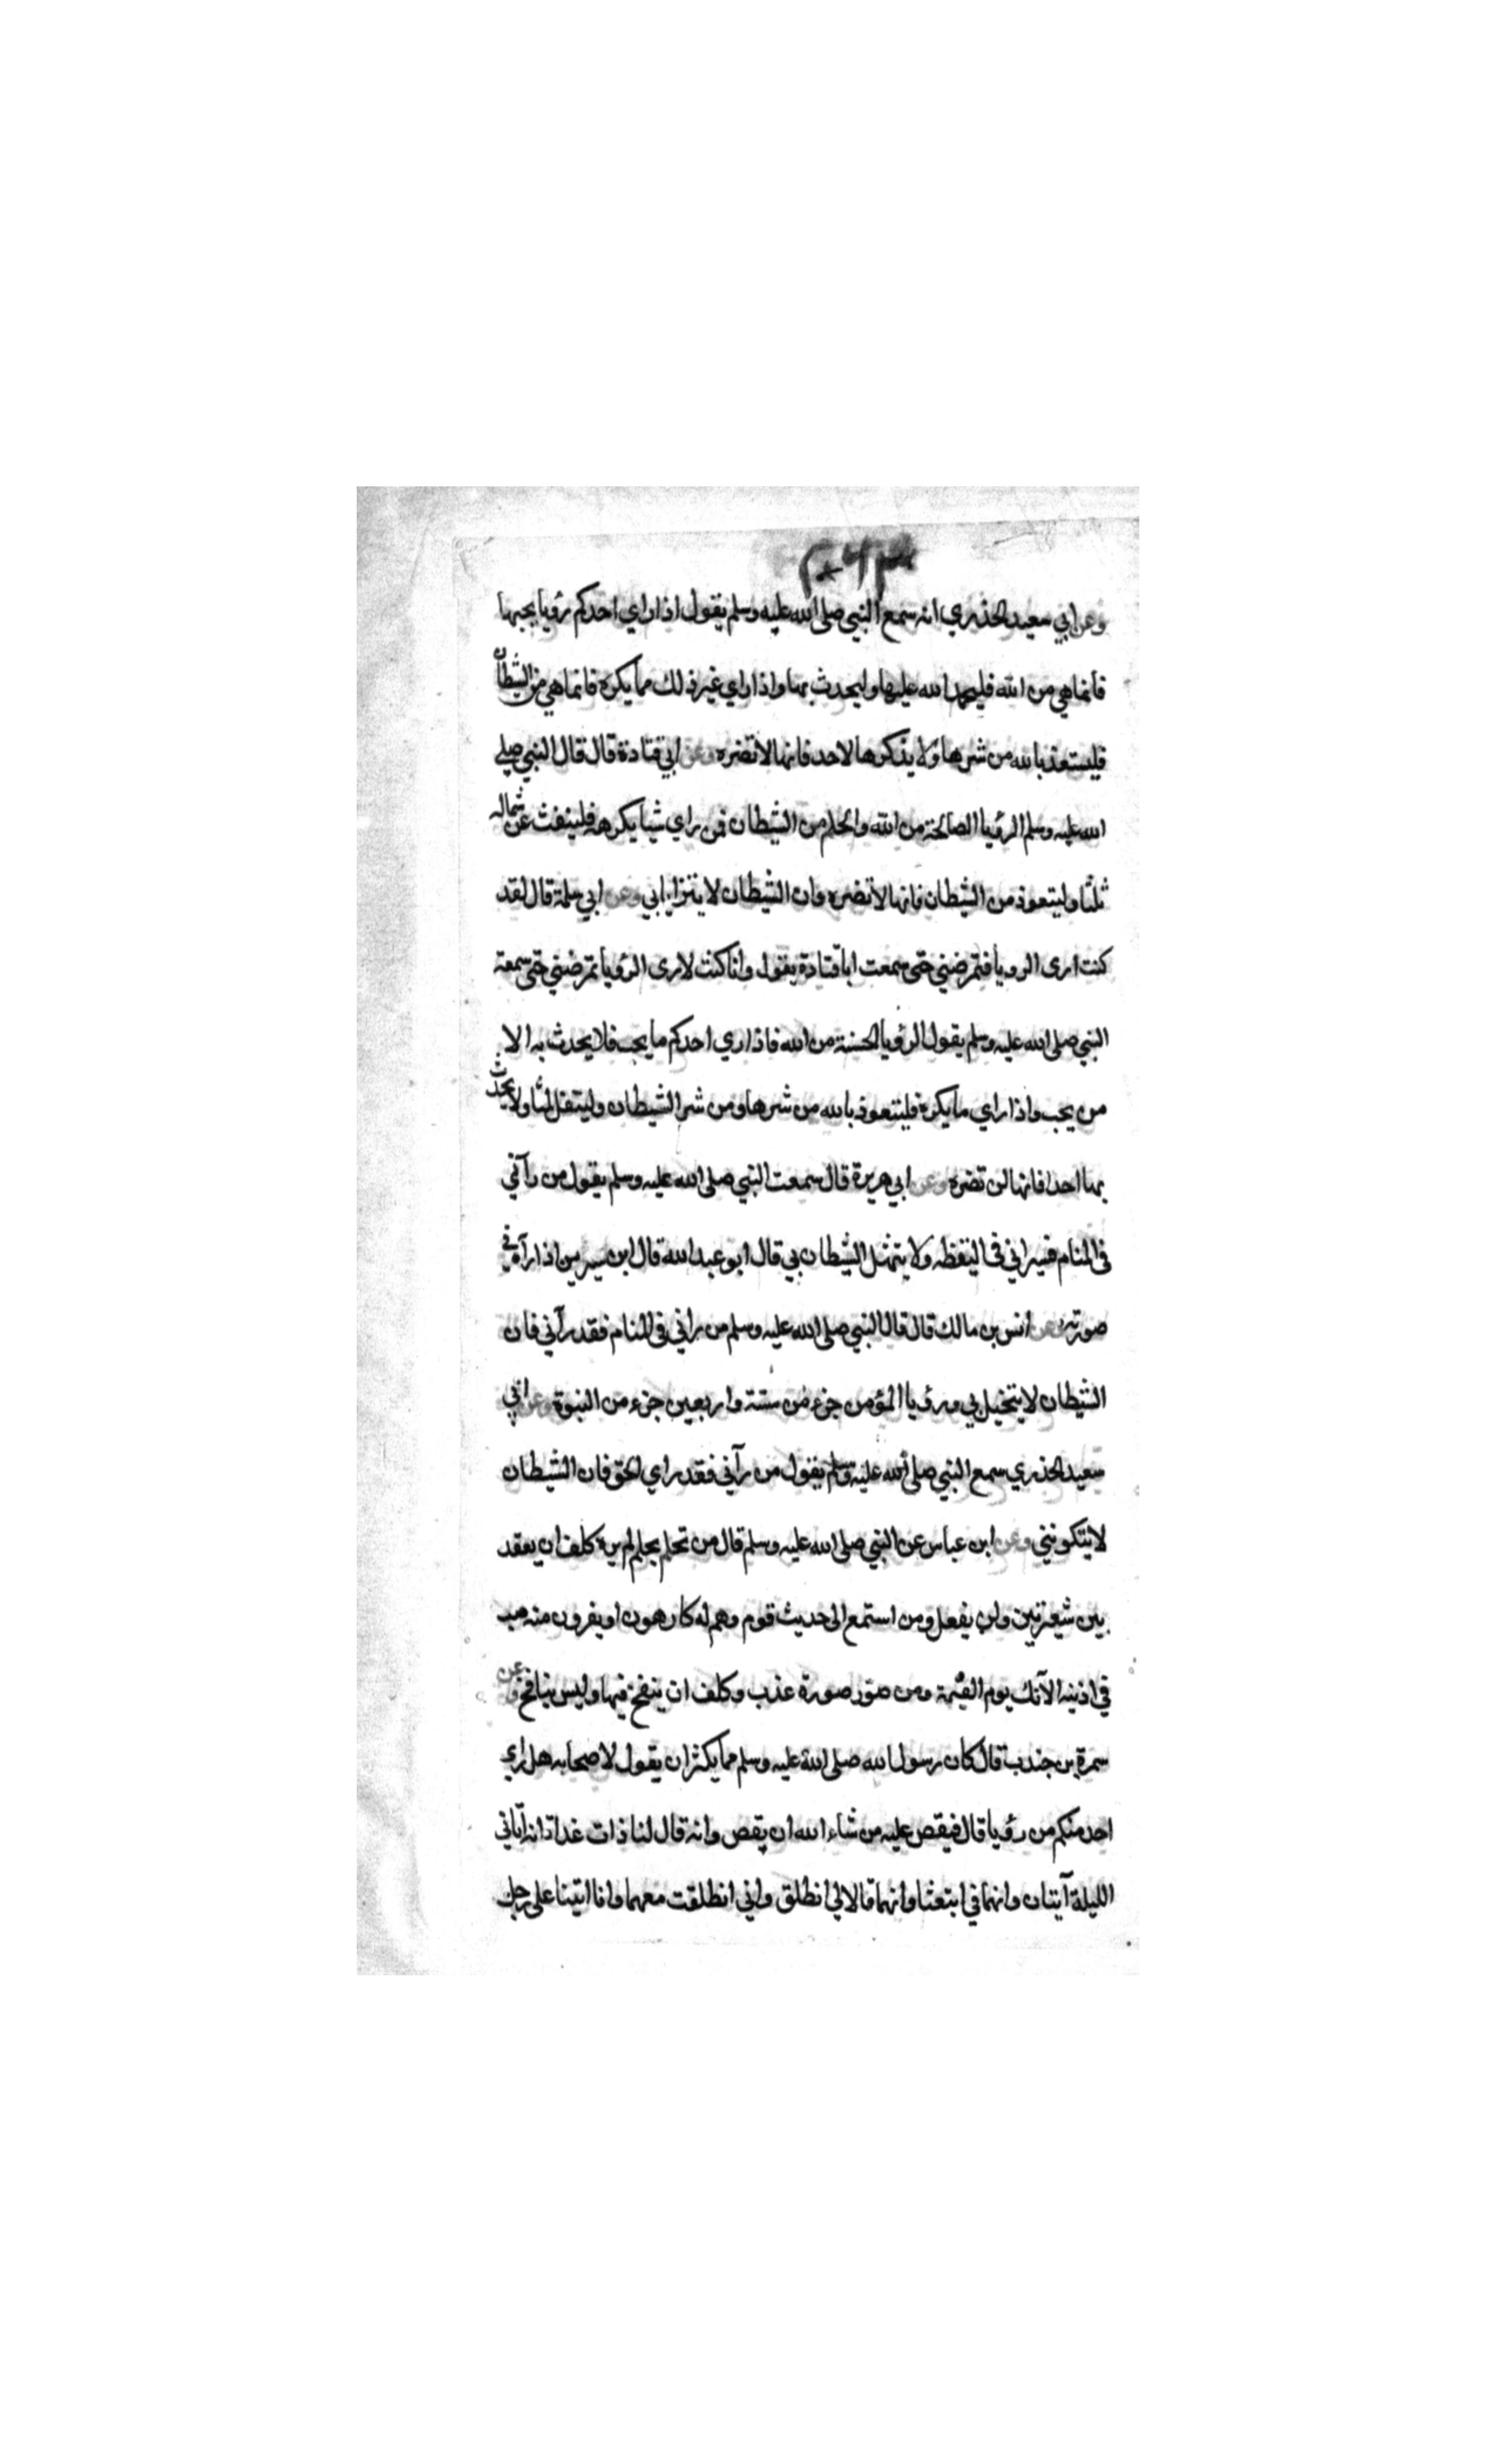 وعن ابي سعيد الخدري انه سمع النبي صلى الله عليه وسلم يقول اذا راي احدكم رؤيا يحبها
فانما هي من الله فليحمد الله عليها وليحدث بها واذا راي غير ذلك مما يكره فانما هي من الشيطان
فليستعذ بالله من شرها ولا يذكرها لاحد فانها لا تضره وعن ابي قتادة قال قال النبي صلى
الله عليه وسلم الرؤيا الصالحة من الله والحلم من الشيطان فمن راي شيا يكرهه فلينفث عن شماله
ثلثا وليتعوذ من الشيطان فانها لا تضره وان الشيطان لا يتزايا بي وعن ابي سلمة قال لقد
كنت ارى الرويا فتمرضني حتى سمعت ابا قتادة يقول وانا كنت لارى الرؤيا تمرضني حتى سمعت
النبي صلى الله عليه وسلم يقول الرؤيا الحسنة من الله فاذا ري احدكم ما يحب فلا يحدث به الا
من يحب واذا راي ما يكره فليتعوذ بالله من شرها ومن شر الشيطان وليتفل ثلثا ولا يحدث
بها احدا فانها لن تضره وعن ابي هريرة قال سمعت النبي صلى الله عليه وسلم يقول من رآني
في المنام فسيراني في اليقظه ولا يتمثل الشيطان بي قال ابو عبد الله قال ابن سيرين اذا رآه في
صورته وعن انس بن مالك قال قال النبي صلى الله عليه وسلم من راني في المنام فقد رآني فان
الشيطان لا يتخيل بي ورؤيا المؤمن جزء من ستة واربعين جزء من النبوة وعن ابي
سعيد الخدري سمع النبي صلى الله عليه وسلم يقول من رآني فقد راي الحق فان الشيطان
لا يتكونني وعن ابن عباس عن النبي صلى الله عليه وسلم قال من تحلم بحلم لم يره كلف ان يعقد
بين شعيرتين ولن يفعل ومن استمع الى حديث قوم وهم له كارهون او يفرون منه صب
في اذنيه الآنك يوم القيمة ومن صور صورة عذب وكلف ان ينفخ فيها وليس بنافخ وعن
سمرة بن جندب قال كان رسول الله صلى الله عليه وسلم مما يكثر ان يقول لاصحابه هل راي
احد منكم من رؤيا قال فيقص عليه من شاء الله ان يقص وانه قال لنا ذات غداة انه اتاني
الليلة آتيان وانهما ابتعثنا وانهما قالا لي انطلق واني انطلقت معهما وانا اتينا على رجل